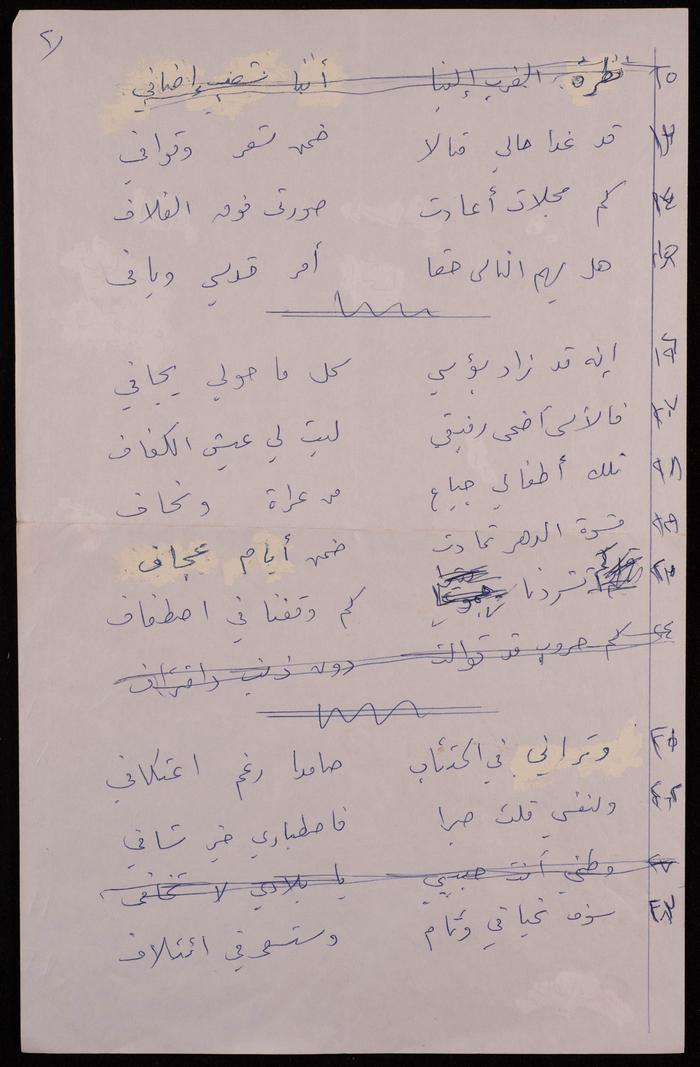 ٢
نظرة الغرب إلينا أننا شعب إضافي
قد غدا حالي مثالا ضمن شعر وقوافي
كم مجلات أعادت صورتي فوق الغلاف
هل يهم الناس حقا أمر قدسي ويافي
إنه قد زاد بؤسي كل ما حولي يجافي
فالأسى أضحى رفيقي ليت لي عيش الكفاف
تلك أطفالي جياع من عراة ونحاف
قسوة الدهر تمادت ضمن أيام عجاف
كم تشردنا كم وقفنا في اصطفاف
كم حروب قد توالت دون ذنب واقتراف
وتراني في اكتئاب صامدا رغم اعتكافي
ولنفسي قلت صبرا فاصطباري خير شافي
وطني أنت حبيبي يا بلادي لا تخافي
سوف نحيا في وئام وسنسمو في ائتلاف